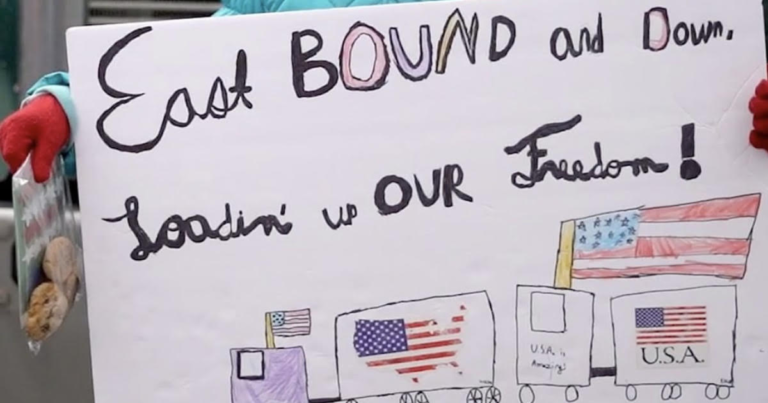 East BOUND and Down,
Loadin' up OUR Freedom!
U.S.A. is
Amazing!
U.S.A.